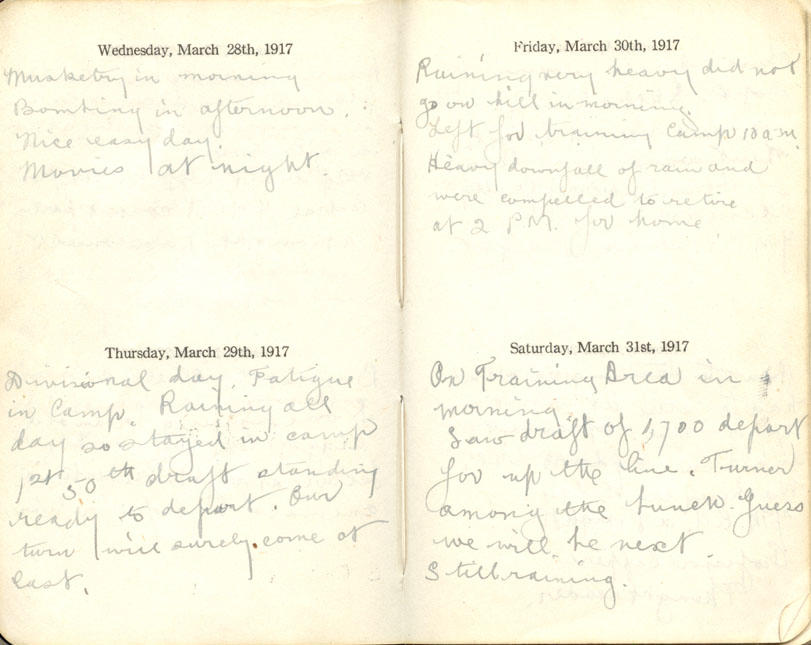 Wednesday, March 28th, 1917
Musketry in morning
Bombing in afternoon.
Nice easy day.
Movies at night.
Thursday, March 29th, 1917
Divisional day. Fatigue
in Camp. Raining all
day so stayed in camp
1st 50th draft standing
ready to depart. Our
turn will surely come at
last.
Friday, March 30th, 1917
Raining very heavy did not
go on hill in morning.
Left for training Camp 10 a.m.
Heavy downfall of rain and
were compelled to retire
at 2 P.M. for home
Saturday, March 31st, 1917
On Training Area in
morning.
Saw draft of 1,700 depart
for up the line. Turner
among the bunch. Guess
we will be next
Still raining.